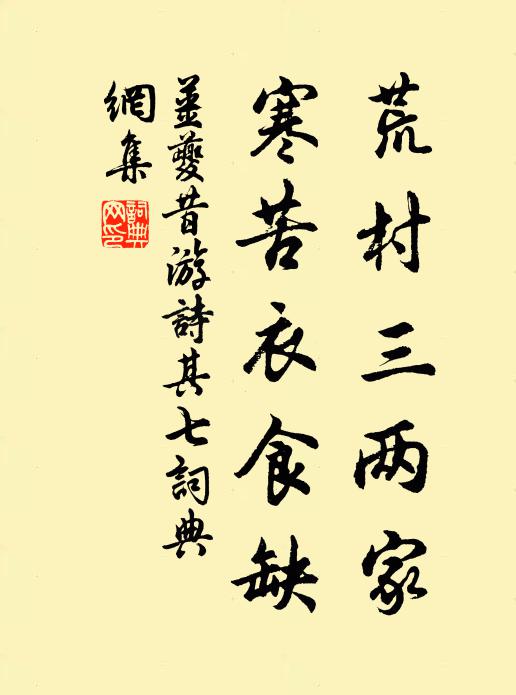 荒村三两家
寒苦衣食缺
姜夔昔游詩其七詞典
網集
詞典網印